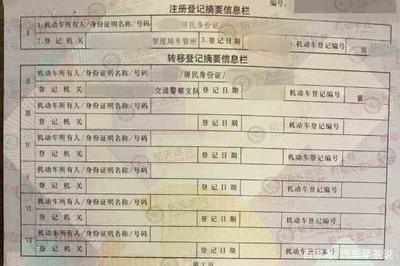 编号:
注册登记摘要信息栏
Ⅰ 1.机动车所有人/身份证明名称/号码 居民身份证/
2.登记机关 管理局车管所 3.登记日期 4.机动车登记编号
转移登记摘要信息栏
Ⅱ 机动车所有人/身份证明名称/号码 /居民身份证/
登记机关 交通警察支队 登记日期 机动车登记编号
Ⅲ 机动车所有人/身份证明名称/号码
登记机关 登记日期 机动车登记编号
Ⅳ 机动车所有人/身份证明名称/号码
登记机关 登记日期 机动车登记编号
Ⅴ 机动车所有人/身份证明名称/号码
登记机关 登记日期 机动车登记编号
Ⅵ 机动车所有人/身份证明名称/号码
登记机关 登记日期 机动车登记编号
Ⅶ 机动车所有人/身份证明名称/号码
登记机关 登记日期 机动车登记编号
第1页